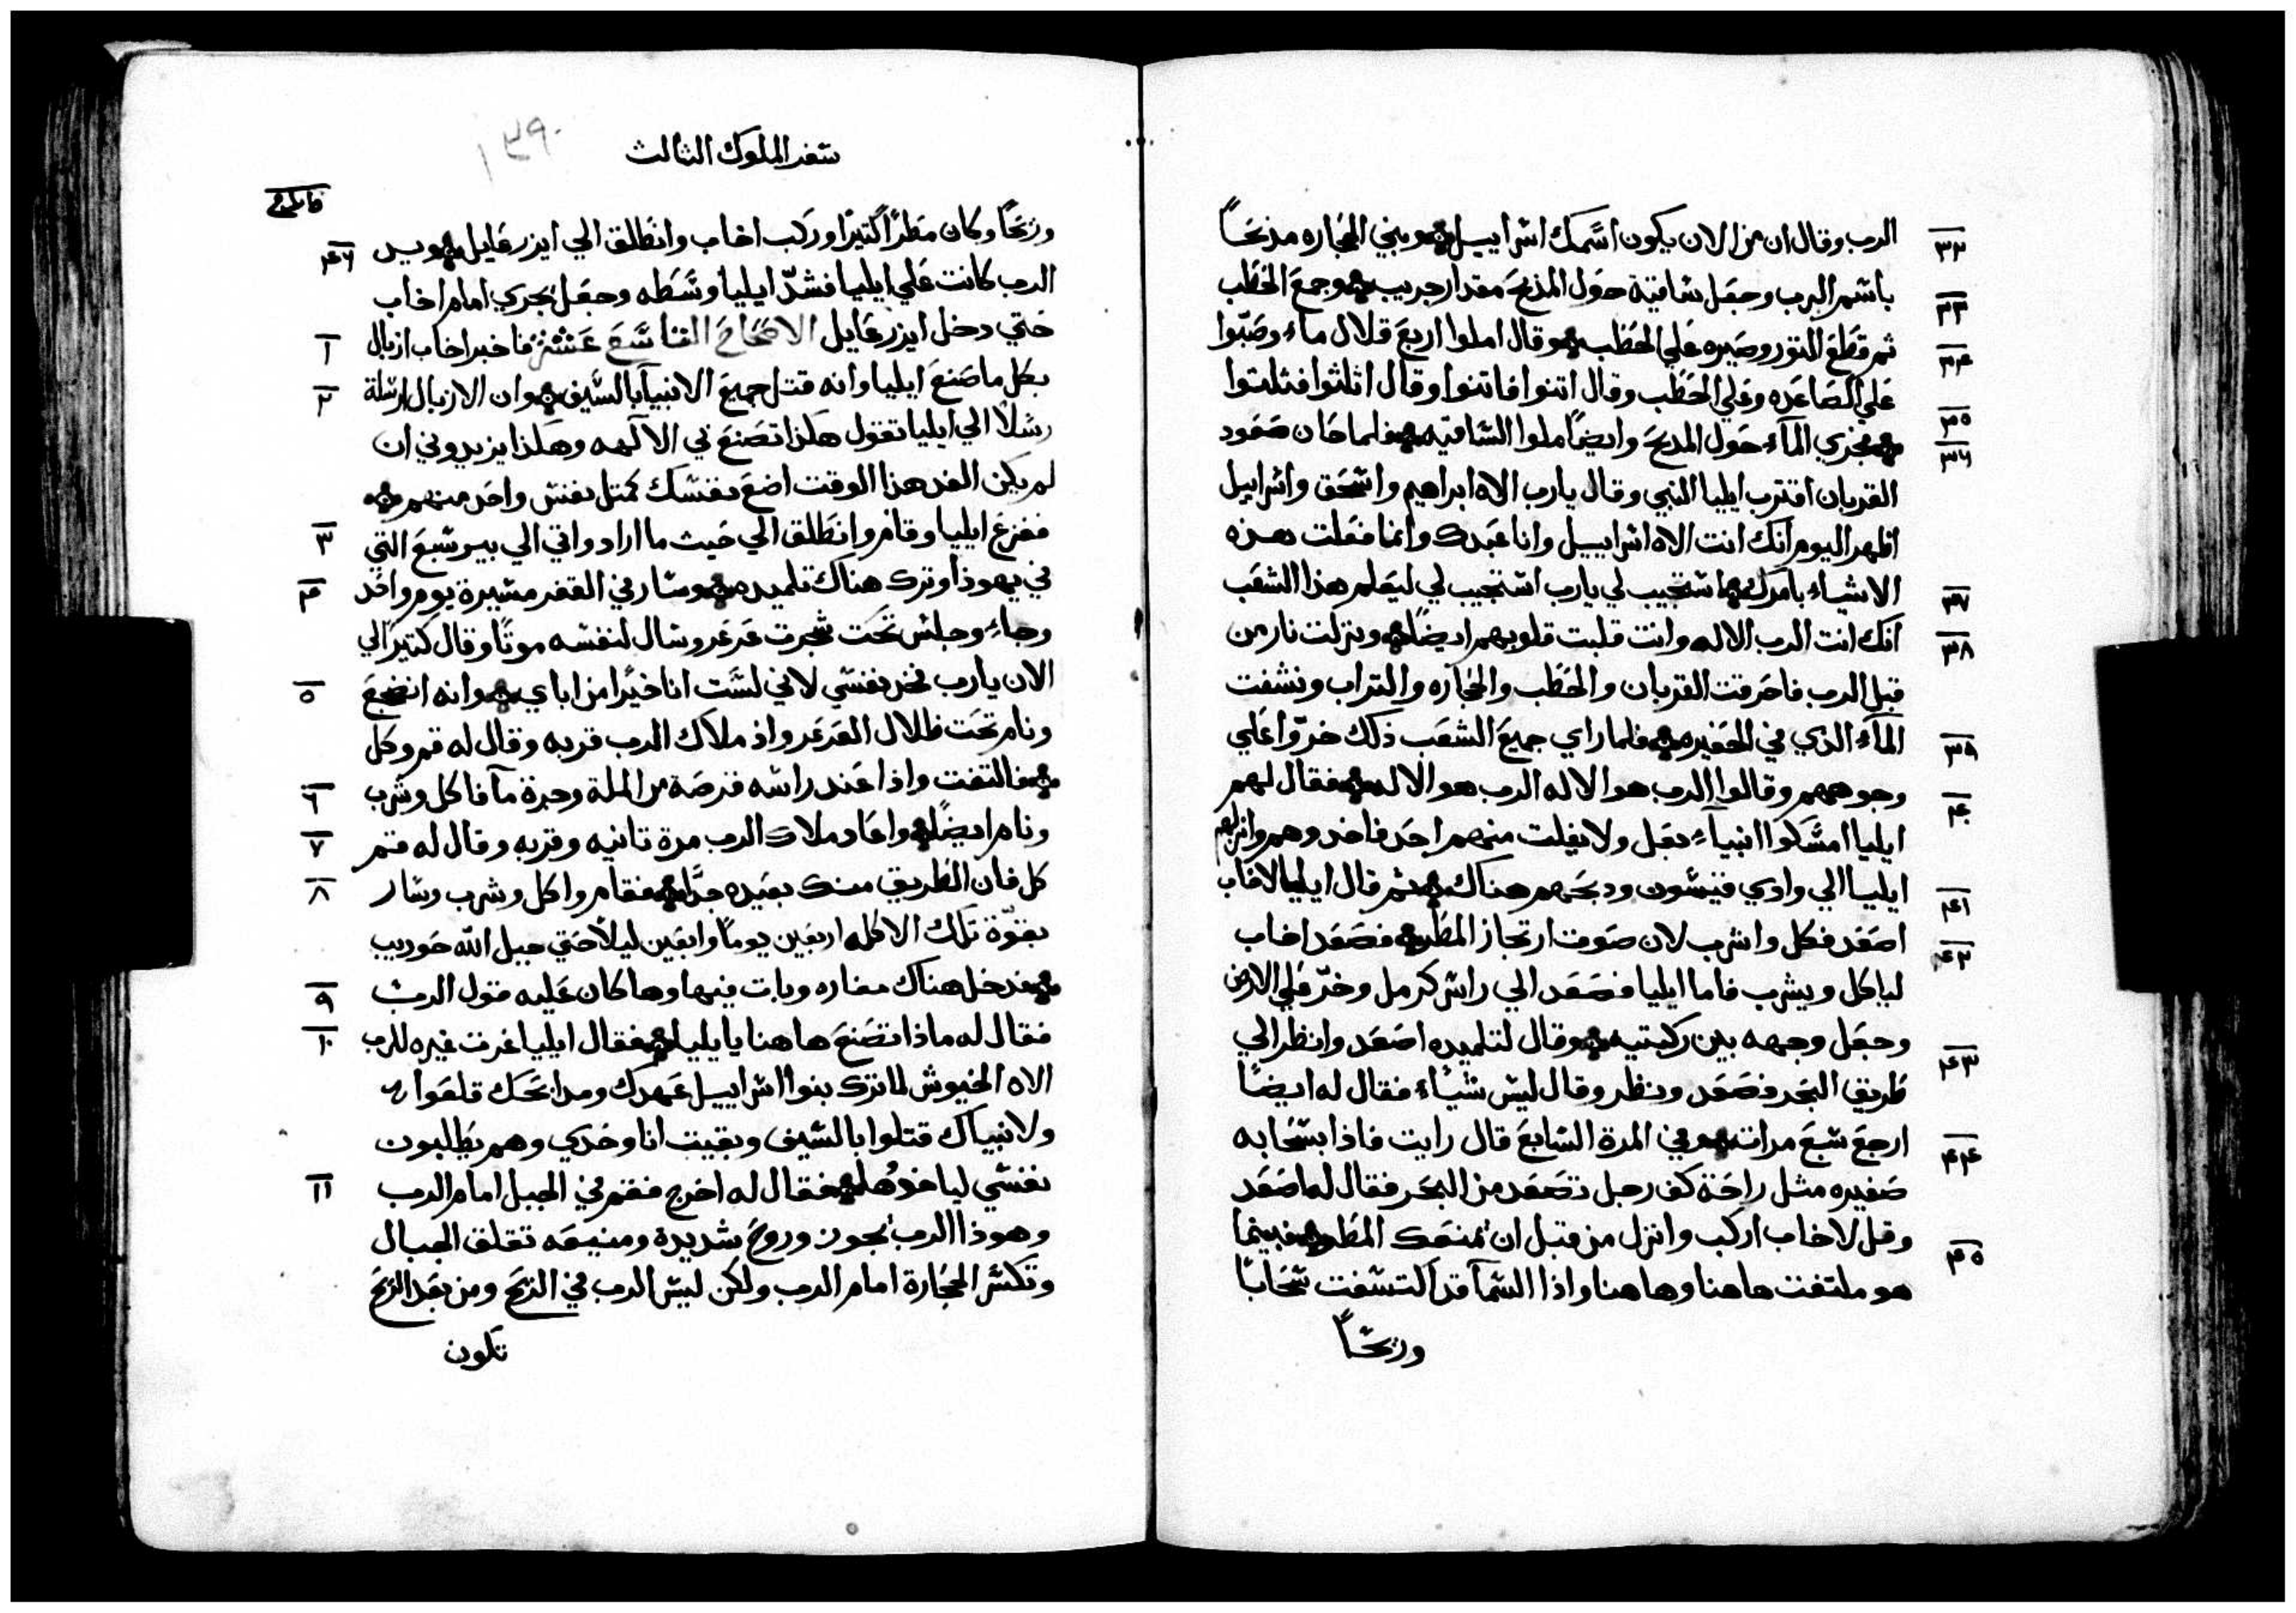 ٣٢ الرب وقال ان من الان يكون اسمك اسراييل وبني الحجاره مذبحاً
باسم الرب وجعل ساقية حول المذبح مقدار جريب وجمع الحطب ٣٣
ثم قطع الثور وصيره علي الحطب وقال املوا اربع قلال ماء وصبّوا ٣٤
علي الصاعده وعلي الحطب وقال اتنوا فاتنوا وقال اثلثوا فثلتوا
فجري المآء حول المدبح وايضاً ملوا الساقيه فلما حان صعود ٣٥ ٣٦
القربان اقترب ايليا النبي وقال يارب الاه ابراهيم واسحق واسراييل
اظهر اليوم انك انت الاه اسراييل وانا عبدك وانما فعلت هذه
الاشياء بامرك استجيب لي يارب استجيب لي ليعلم هذا الشعب ٣٧
انك انت الرب الاله وانت قلبت قلوبهم ايضاً ونزلت نار من ٣٨
قبل الرب فاحرقت القربان والحطب والحجاره والتراب ونشفت
المآء الذي في الحفيره فلما راي جميع الشعب ذلك خرّوا علي ٣٩
وجوههم وقالوا الرب هو الاله الرب هو الاله فقال لهم ٤٠
ايليا امسكوا انبيآء بعل ولا يفلت منهم احد فاخدوهم وانزلهم
ايليا الي وادي قيشون ودبحهم هناك ثم قال ايليا لاخاب ٤١
اصعد فكل واشرب لان صوت ارتجاز المطر فصعد اخاب ٤٢
لياكل ويشرب فاما ايليا فصعد الي راس كرمل وخرّ علي الارض
وجعل وجهه بين ركبتيه وقال لتلميده اصعد وانظر الي ٤٣
طريق البحر فصعد ونظر وقال ليس شياء فقال له ايضاً
ارجع سبع مرات وفي المرة السابع قال رايت فاذا بسحابه ٤٤
صغيره مثل راحة كف رجل تصعد من البحر فقال له اصعد
وقل لاخاب اركب وانزل من قبل ان يمنعك المطر فبينما ٤٥
هو ملتفت هاهنا وهاهنا واذا السمآ قد التسفت سحاباً
وريحاً
سفر الملوك الثالث
١٣٩٠
وريحاً وكان مطراً كتيراً وركب اخاب وانطلق الي ايزرعايل ويد ٤٦
الرب كانت علي ايليا فشدّ ايليا وسطه وجعل يجري امام اخاب
حتي دخل ايزرعايل الاصحاح التاسع عشر فاخبر اخاب ازبال ١
بكل ما صنع ايليا وانه قتل جميع الانبيآ بالسيف وان الازبال ارسلة ٢
رسلاً الي ايليا تقول هكذا تصنع بي الالهه وهكذا يزيدوني ان
لم يكن الغد هذا الوقت اضع نفسك كمتل نفس واحد منهم
ففزع ايليا وقام وانطلق الي حيث ما اراد واتي الي بير سبع التي ٣
في يهوذا وترك هناك تلميده وسار في القفر مسيرة يوم واحد ٤
وجاء وجلس تحت شجرت عرعر وسال لنفسه موتاً وقال كتير الي
الان يارب فخذ نفسي لاني لست انا خيراً من اباي وانه انضجع ٥
ونام تحت ظلال العرعر واذ ملاك الرب قربه وقال له قم وكل
فالتفت واذا عند راسه قرصة من الملة وجرة مآ فاكل وشرب ٦
ونام ايضاً واعاد ملاك الرب مرة تانيه وقربه وقال له قم ٧
كل فان الطريق منك بعيده جداً فقام واكل وشرب وسار ٨
بقوّة تلك الاكله اربعين يوماً واربعين ليلاً حتي جبل الله حوريب
فدخل هناك مغاره وبات فيها وها كان عليه قول الرب ٩
فقال له ماذا تصنع هاهنا يا يليا فقال ايليا غرت غيره للرب ١٠
الاه الجيوش لما ترك بنوا اسراييل عهدك ومدابحك قلعوا
ولانبياك قتلوا بالسيف وبقيت انا وحدي وهم يطلبون
نفسي لياخدوها فقال له اخرج فقم في الجبل امام الرب ١١
وهوذا الرب يجوز وروح شديدة ومنيعه تقلق الجبال
وتكسر الحجارة امام الرب ولكن ليس الرب في الريح ومن بعد الريح
تكون